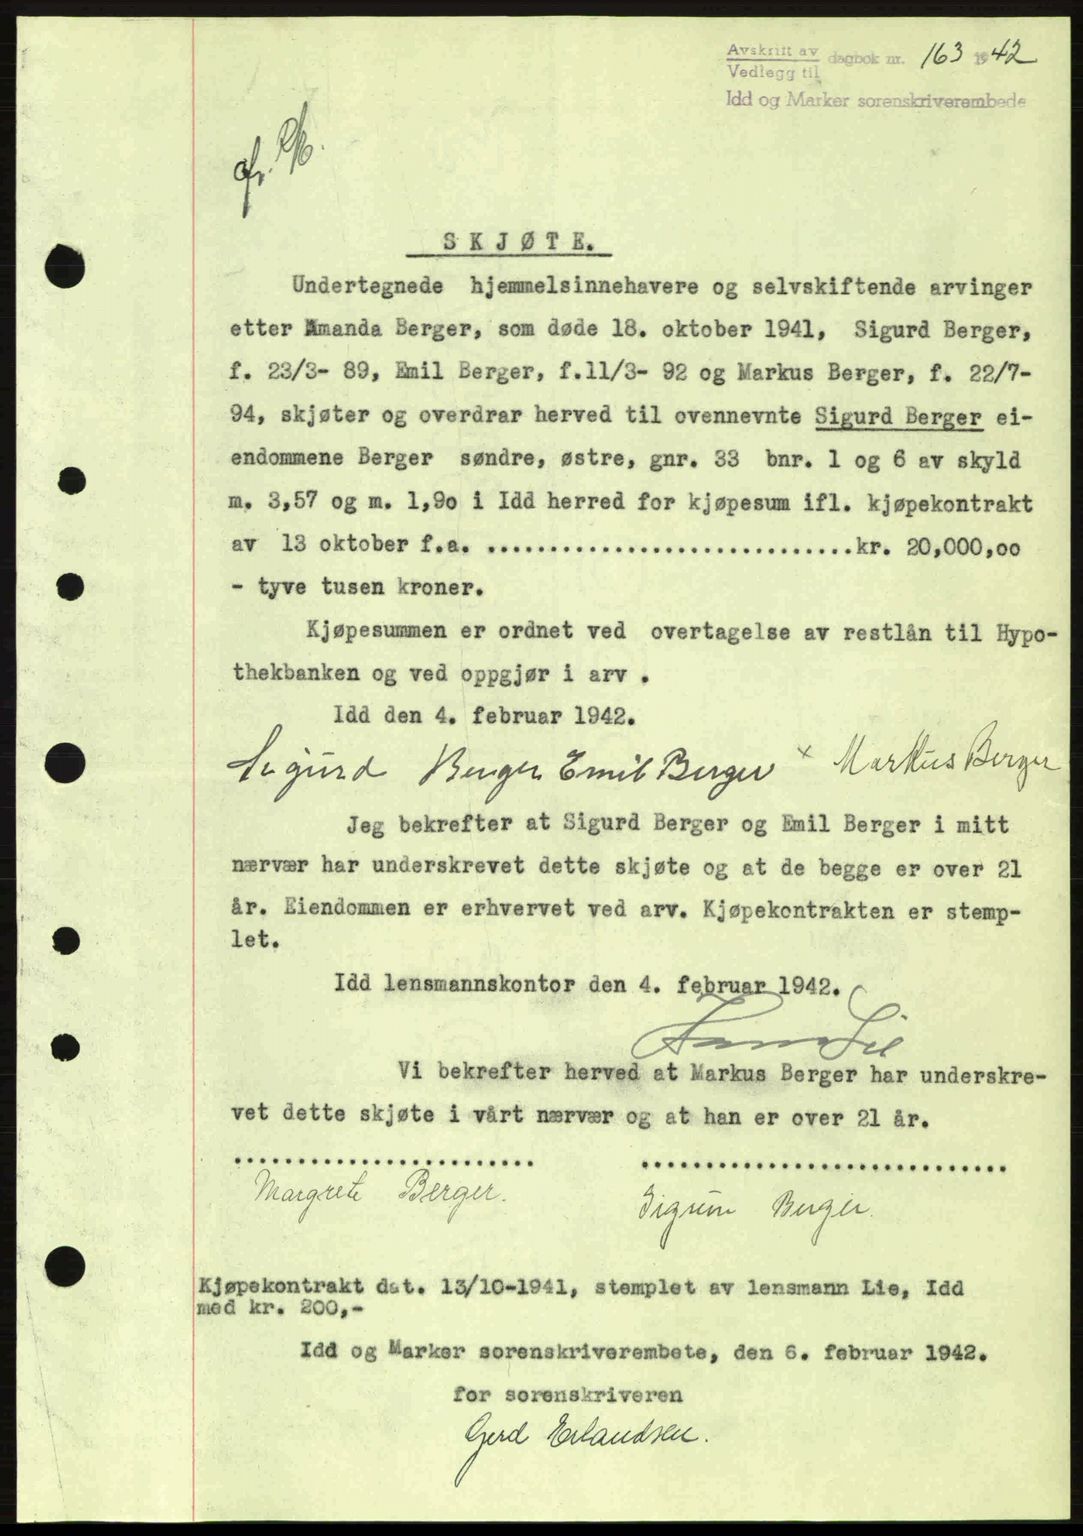 Avskrift av
Vedlegg til
dagbok nr. 163 1942
Idd og Marker sorenskriverembede
SKJØTE.
Undertegnede hjemmelsinnehavere og selvskiftende arvinger
etter Amanda Berger, som døde 18. oktober 1941, Sigurd Berger,
f. 23/3- 89, Emil Berger, f.11/3- 92 og Markus Berger, f. 22/7-
94, skjøter og overdrar herved til ovennevnte Sigurd Berger ei-
endommene Berger søndre, østre, gnr. 33 bnr. 1 og 6 av skyld
m. 3,57 og m. 1,90 i Idd herred for kjøpesum ifl. kjøpekontrakt
av 13 oktober f.a. .............................kr. 20,000,00
- tyve tusen kroner.
Kjøpesummen er ordnet ved overtagelse av restlån til Hypo-
thekbanken og ved oppgjør i arv .
Idd den 4. februar 1942.
Sigurd Berger Emil Berger x Markus Berger
Jeg bekrefter at Sigurd Berger og Emil Berger i mitt
nærvær har underskrevet dette skjøte og at de begge er over 21
år. Eiendommen er erhvervet ved arv. Kjøpekontrakten er stemp-
let.
Idd lensmannskontor den 4. februar 1942.
Lie
Vi bekrefter herved at Markus Berger har underskre-
vet dette skjøte i vårt nærvær og at han er over 21 år.
........................ .............................
Margrete Berger. Sigrun Berger.
Kjøpekontrakt dat. 13/10-1941, stemplet av lensmann Lie, Idd
med kr. 200,-
Idd og Marker sorenskriverembete, den 6. februar 1942.
for sorenskriveren
Gerd Erlandsen.